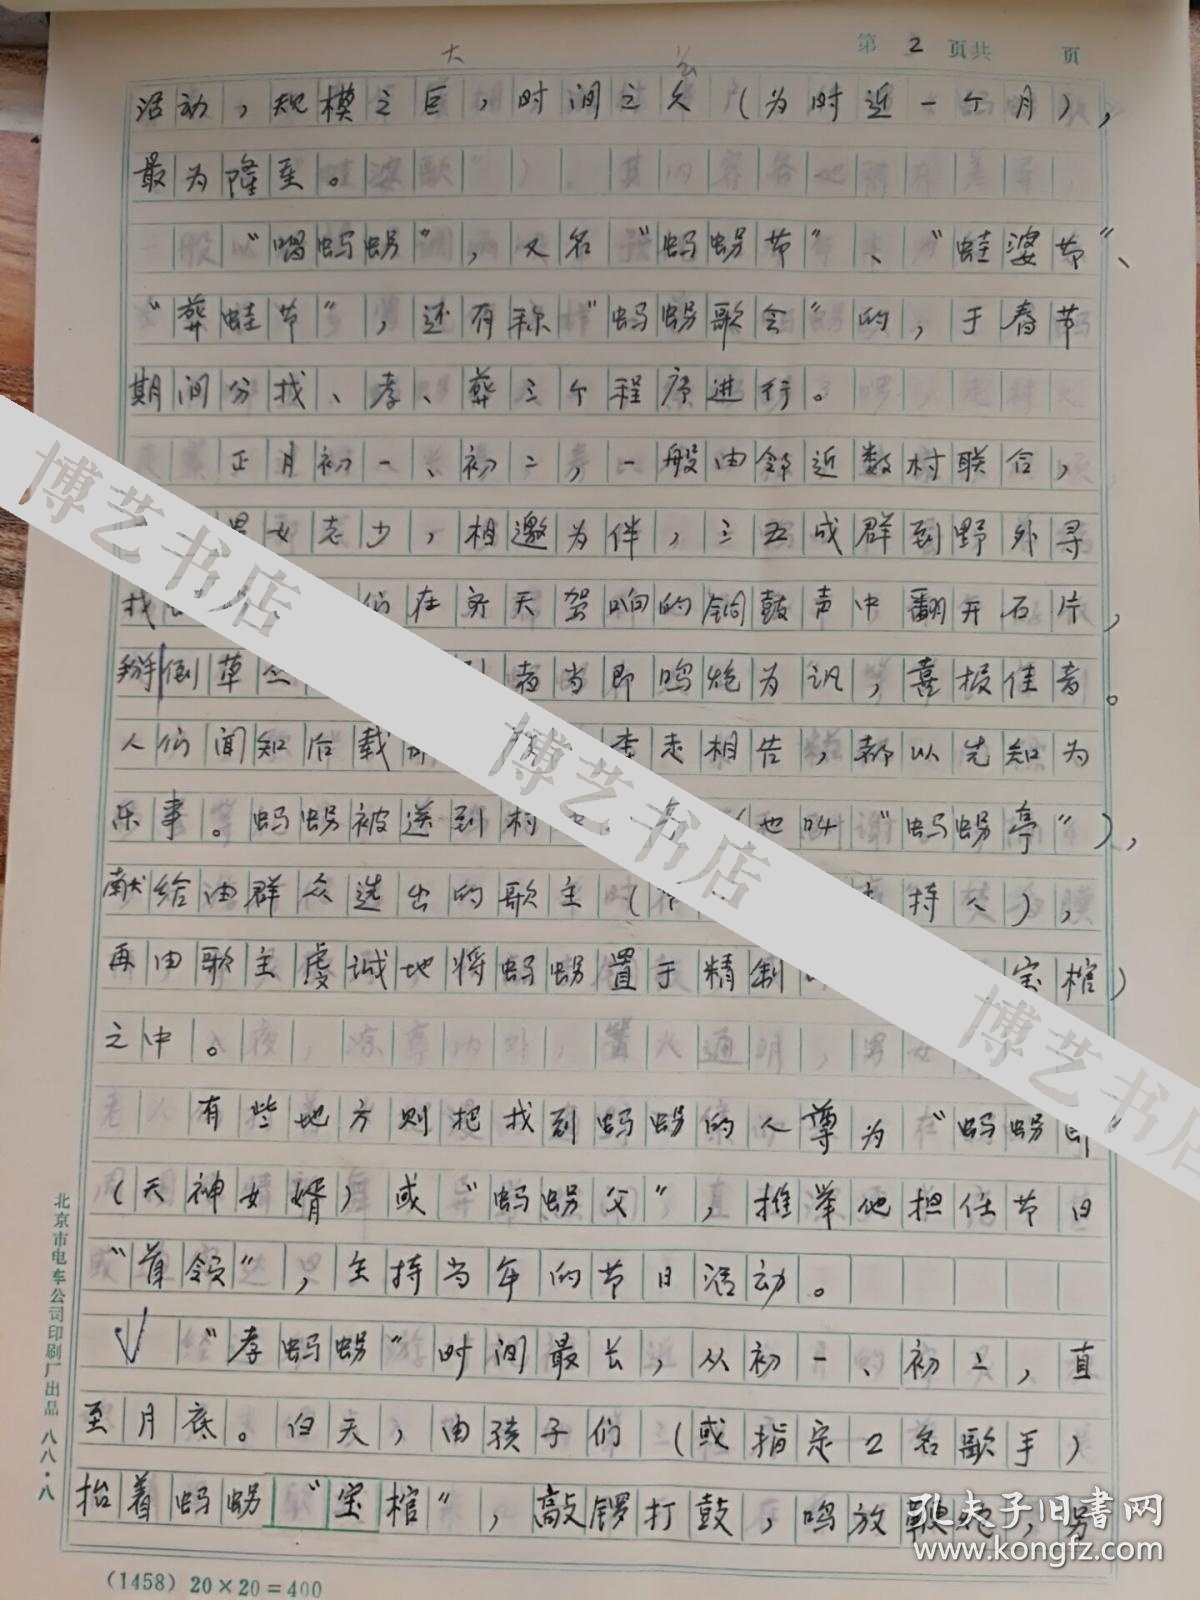 第 2 页共 页
大
活动，规模之巨，时间之久（为时近一个月），
最为隆重。
“唱蚂𧊅”，又名“蚂𧊅节”、“蛙婆节”、
“葬蛙节”，还有称“蚂𧊅歌会”的，于春节
期间分找、孝、葬三个程序进行。
正月初一、初二，一般由邻近数村联合，
男女老少，相邀为伴，三五成群到野外寻
找 们在齐天驾响的铜鼓声中翻开石片，
掰倒草丛 者当即鸣炮为讯，喜报佳音。
人们闻知后载 奔走相告，都以先知为
乐事。蚂𧊅被送到村 （也叫“蚂𧊅亭”），
献给由群众选出的歌主（ 持人），
再由歌主虔诚地将蚂𧊅置于精制 宝棺）
之中。
有些地方则把找到蚂𧊅的人尊为“蚂𧊅郎
（天神女婿）或“蚂𧊅父”，推举他担任节日
“首领”，主持当年的节日活动。
“孝蚂𧊅”时间最长，从初一、初二，直
至月底。白天，由孩子们（或指定2名歌手）
抬着蚂𧊅“宝棺”，敲锣打鼓，鸣放鞭炮，
北京市电车公司印刷厂出品 八八·八
(1458) 20×20=400
博艺书店
博艺书店
博艺书店
孔夫子旧书网
www.kongfz.com